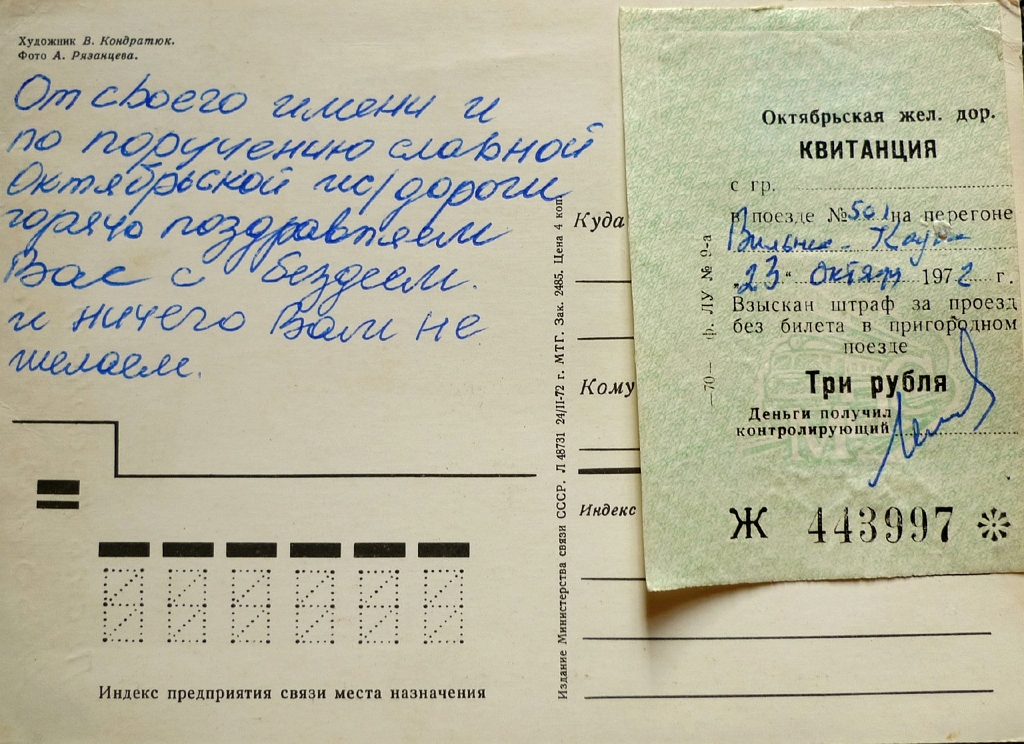 Художник В. Кондратюк.
Фото А. Рязанцева.
От своего имени и
по поручению славной
Октябрьской ж/дороги
горячо поздравляем
Вас с бездеем.
и ничего Вам не
желаем.
Индекс предприятия связи места назначения
Издание Министерства связи СССР. Л 48731 24/II-72 г. МТГ. Зак. 2485. Цена 4 коп.
Куда
Кому
Индекс
—70— ф. ЛУ № 9-а
Октябрьская жел. дор.
КВИТАНЦИЯ
с гр.
в поезде № 501 на перегоне
Вильнюс - Каунас
„23“ Октября 1972 г.
Взыскан штраф за проезд
без билета в пригородном
поезде
Три рубля
Деньги получил
контролирующий
Ж 443997